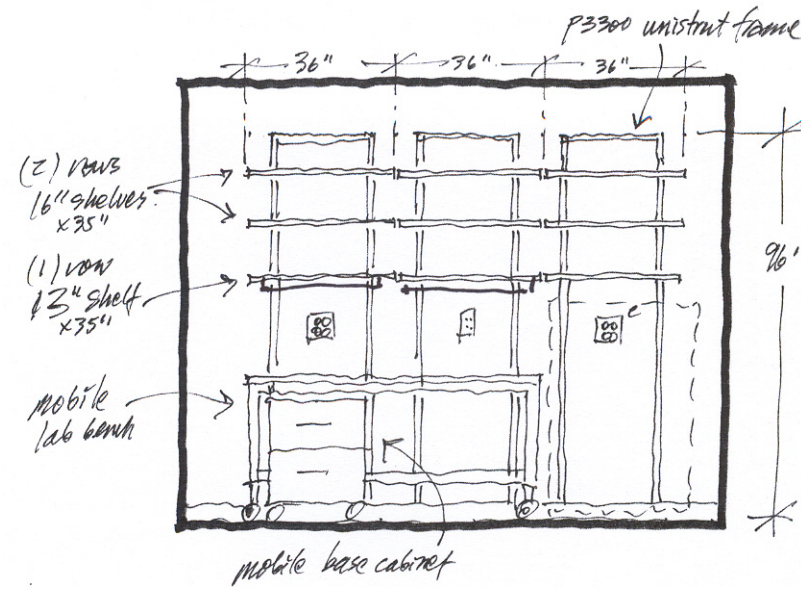 P3300 unistrut frame
36" 36" 36"
(2) rows
16" shelves
x35"
(1) row
13" shelf
x35"
96"
mobile
lab bench
mobile base cabinet